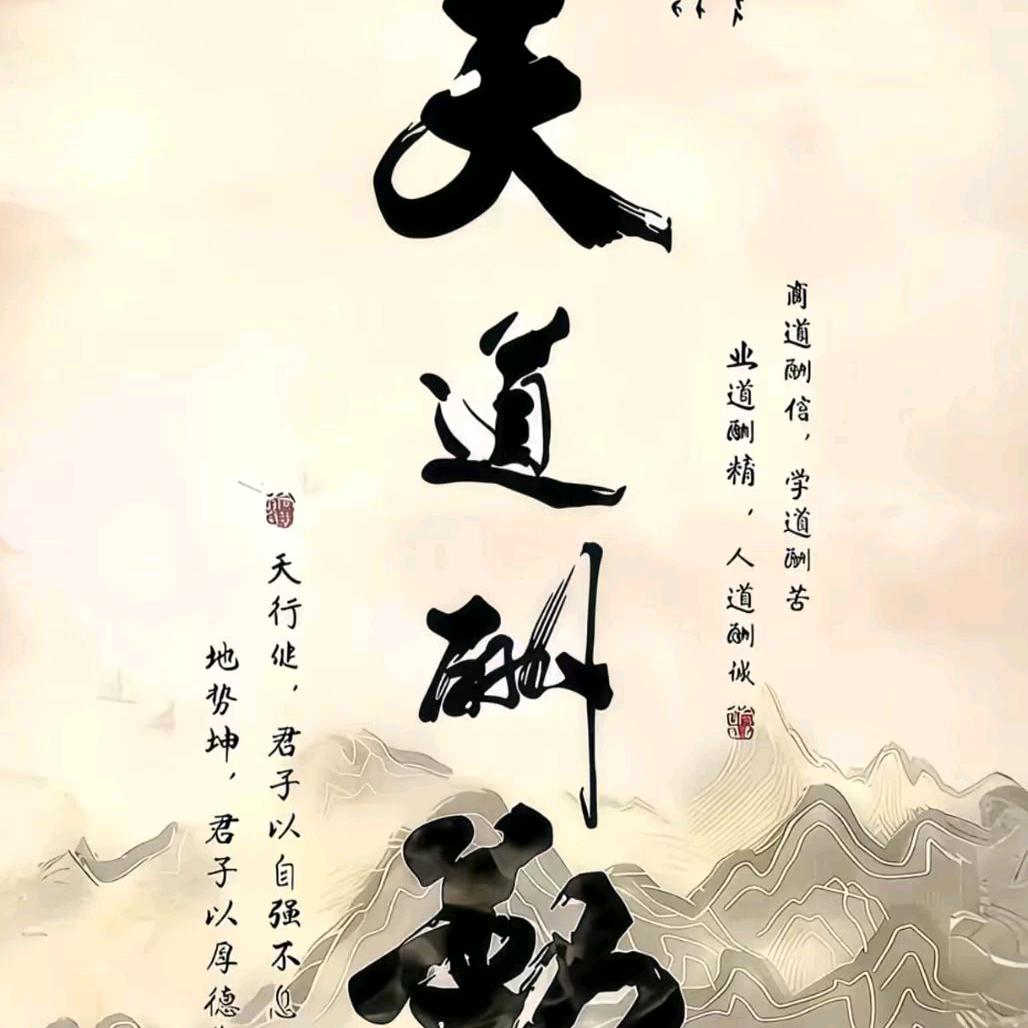 天道酬勤
商道酬信，学道酬苦
业道酬精，人道酬诚
天行健，君子以自强不息
地势坤，君子以厚德